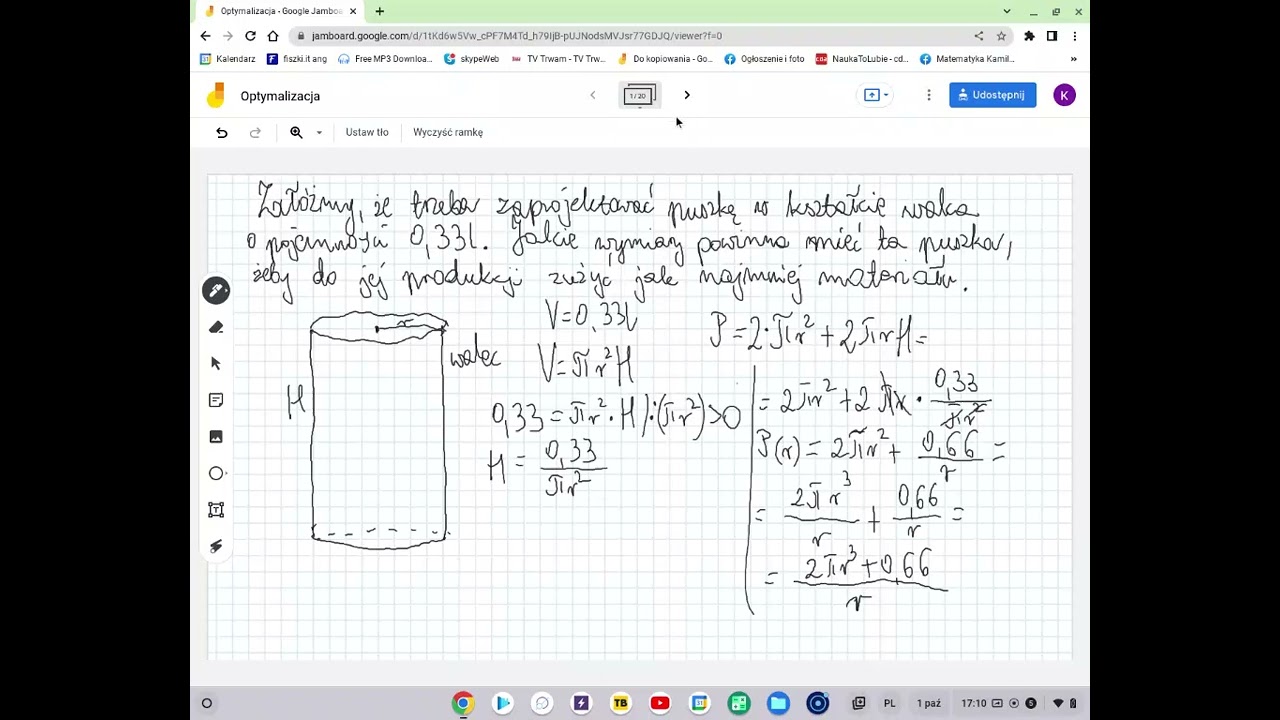 Optymalizacja - Google Jamboa
jamboard.google.com/d/1tKd6w5Vw_cPF7M4Td_h79IjB-pUJNodsMVJsr77GDJQ/viewer?f=0
Kalendarz fiszki.it ang Free MP3 Downloa... skypeWeb TV Trwam - TV Trw... Do kopiowania - Go... Ogłoszenie i foto NaukaToLubie - cd... Matematyka Kamil...
Optymalizacja 1/20 Udostępnij K
Ustaw tło Wyczyść ramkę
Załóżmy, że trzeba zaprojektować puszkę w kształcie walca
o pojemności 0,33l. Jakie wymiary powinna mieć ta puszka,
żeby do jej produkcji zużyć jak najmniej materiału.
r
H
walec
V=0,33l
V=πr²H
0,33=πr²·H /:(πr²)>0
H = 0,33/πr²
P=2·πr²+2πrH=
=2πr²+2πr·0,33/πr²
P(r)=2πr²+0,66/r=
=2πr³/r+0,66/r=
=2πr³+0,66/r
TB PL 1 paź 17:10 5